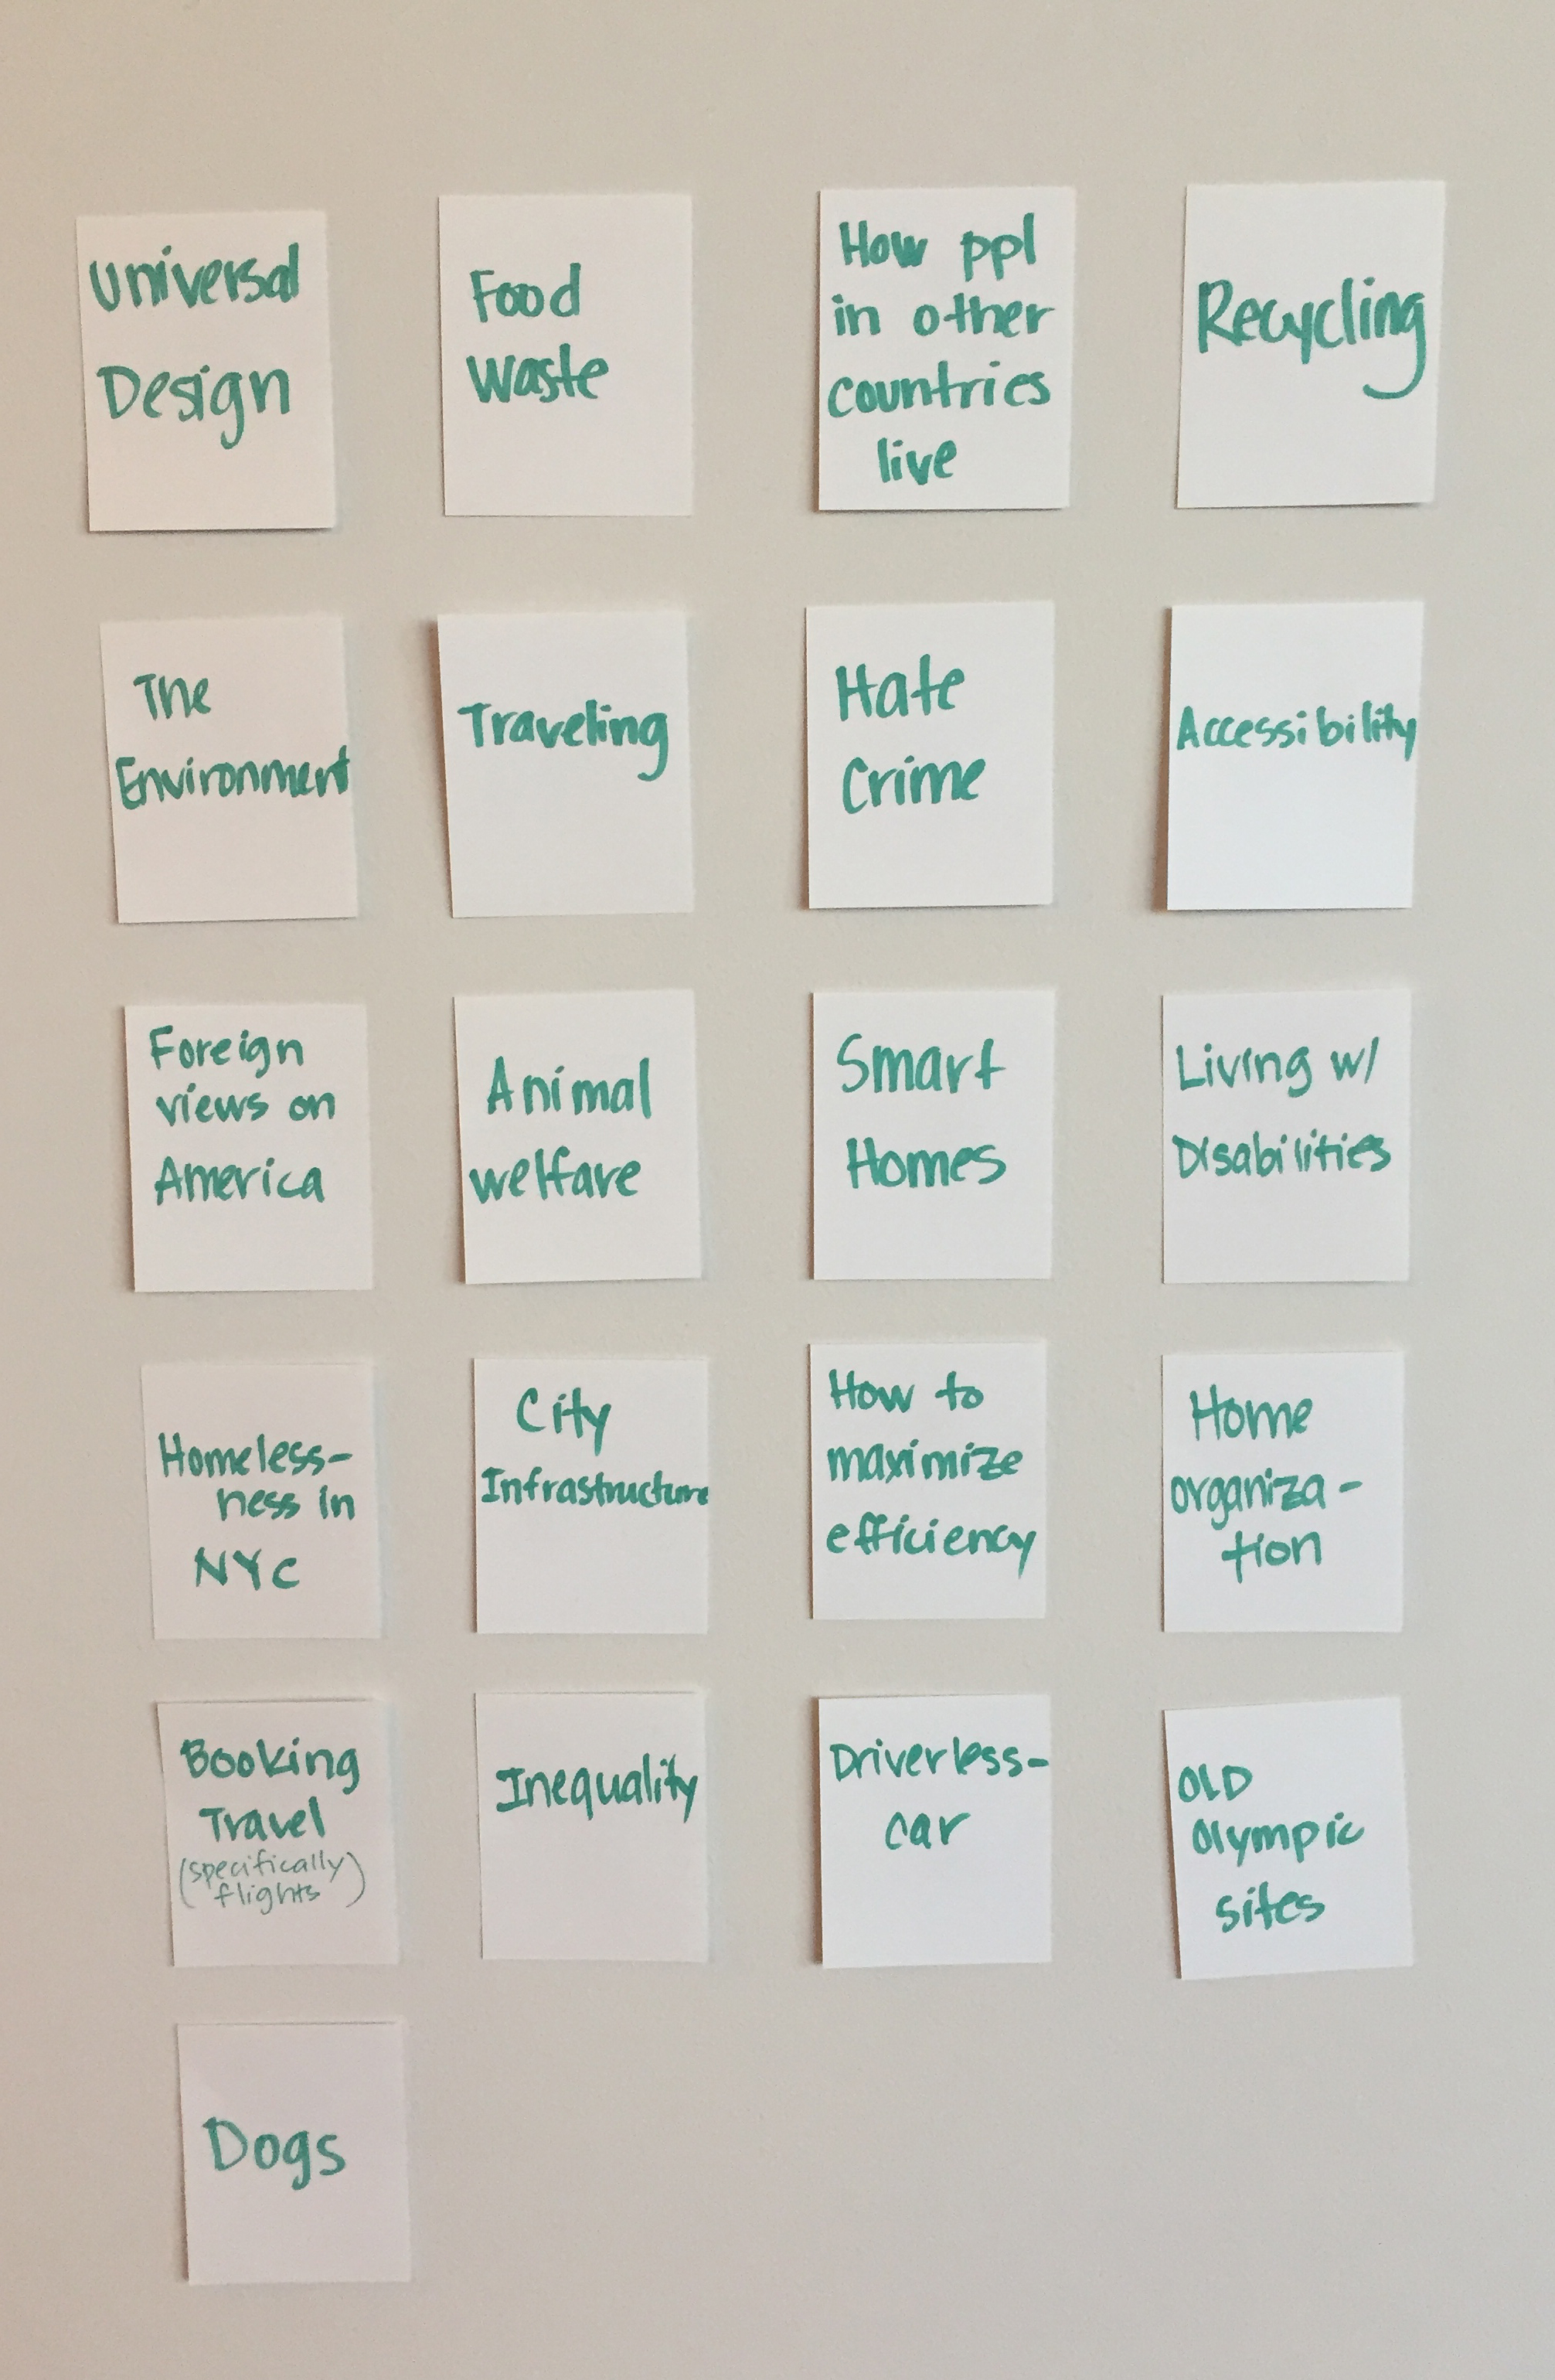 Universal
Design
Food
Waste
How ppl
in other
countries
live
Recycling
The
Environment
Traveling
Hate
Crime
Accessibility
Foreign
views on
America
Animal
welfare
Smart
Homes
Living w/
Disabilities
Homeless-
ness in
NYC
City
Infrastructure
How to
maximize
efficiency
Home
organiza-
tion
Booking
Travel
(specifically
flights)
Inequality
Driverless-
car
OLD
Olympic
sites
Dogs